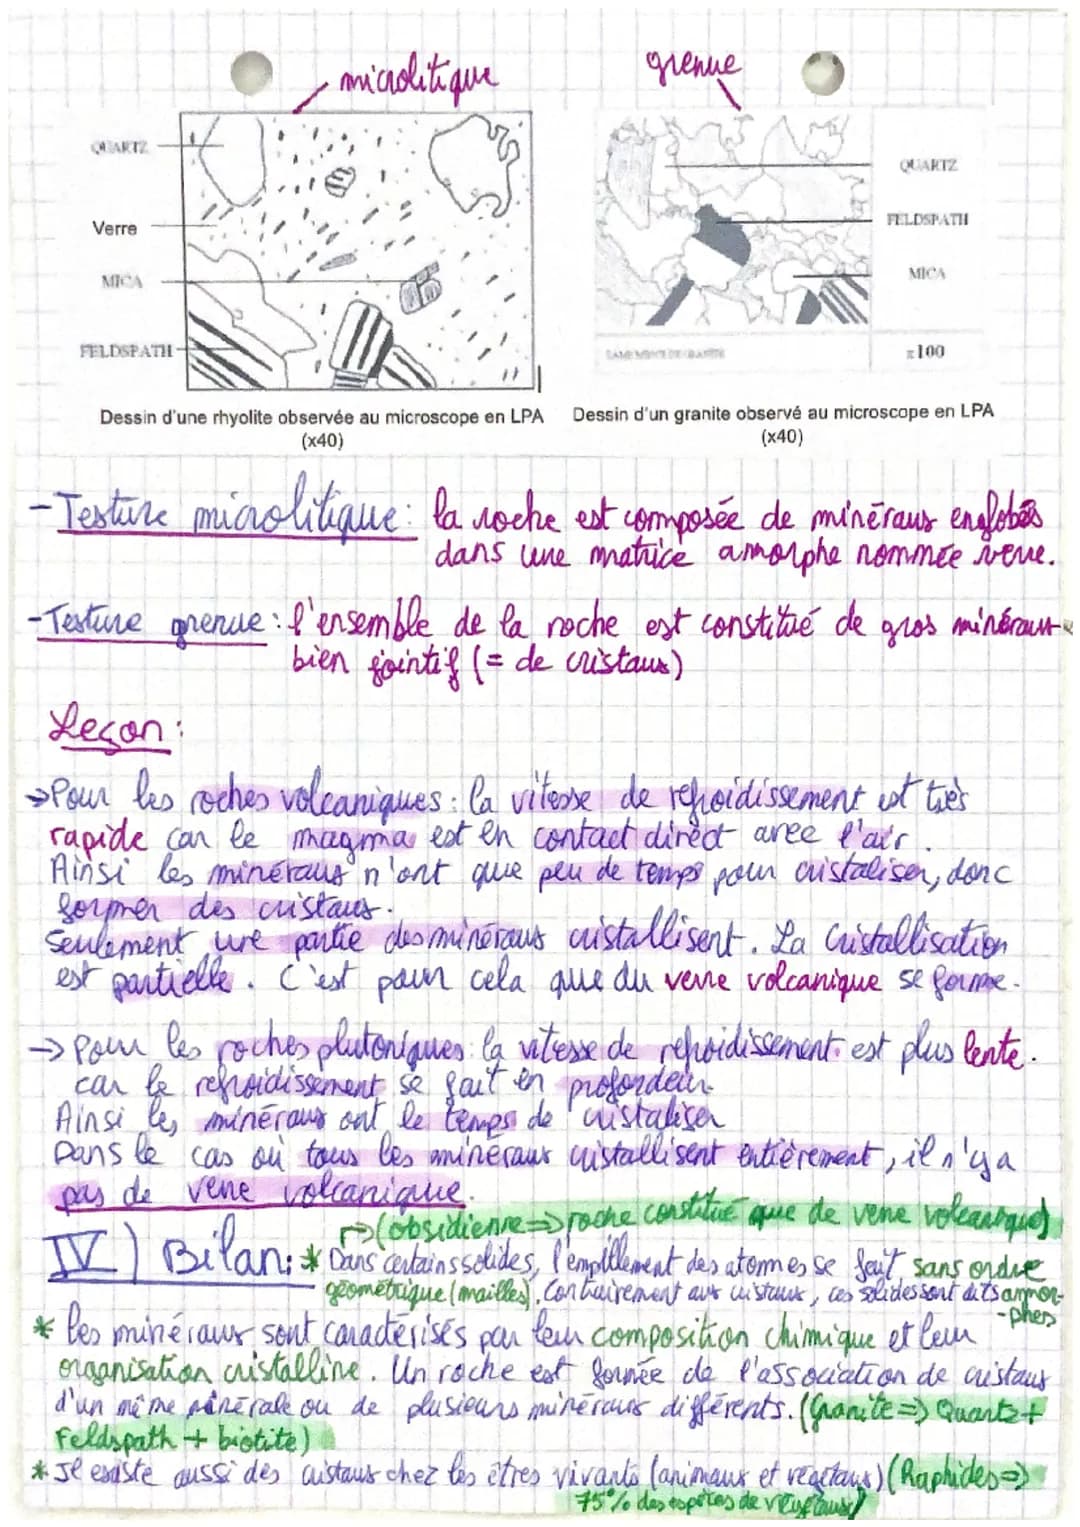 microlitique
grenue
QUARTZ
Verre
MICA
FELDSPATH
QUARTZ
FELDSPATH
MICA
LAME MINCE DE GRANITE
x100
Dessin d'une rhyolite observée au microscope en LPA
(x40)
Dessin d'un granite observé au microscope en LPA
(x40)
- Texture microlitique : la roche est composée de minéraux englobés
dans une matrice amorphe nommée verre.
- Texture grenue : l'ensemble de la roche est constitué de gros minéraux
bien jointif (= de cristaux)
Leçon :
→ Pour les roches volcaniques : la vitesse de refroidissement est très
rapide car le magma est en contact direct avec l'air.
Ainsi les minéraux n'ont que peu de temps pour cristaliser, donc
former des cristaux.
Seulement une partie des minéraux cristallisent. La Cristallisation
est partielle. C'est pour cela que du verre volcanique se forme.
→ Pour les roches plutoniques : la vitesse de refroidissement est plus lente.
car le refroidissement se fait en profondeur
Ainsi les minéraux ont le temps de cristaliser
Dans le cas où tous les minéraux cristallisent entièrement, il n'y a
pas de verre volcanique.
(obsidienne => roche constitué que de verre volcanique)
IV) Bilan : * Dans certains solides, l'empillement des atommes se fait sans ordre
géométrique (mailles). Contrairement aux cristaux, ces solides sont dits ammor-
-phes
* Les minéraux sont caractérisés par leur composition chimique et leur
organisation cristalline. Un roche est formée de l'association de cristaux
d'un même minérale ou de plusieurs minéraux différents. (Granite => Quartz +
Feldspath + biotite)
* Il existe aussi des cristaux chez les êtres vivants (animaux et végétaux) (Raphides =>
75% des espèces de végétaux)